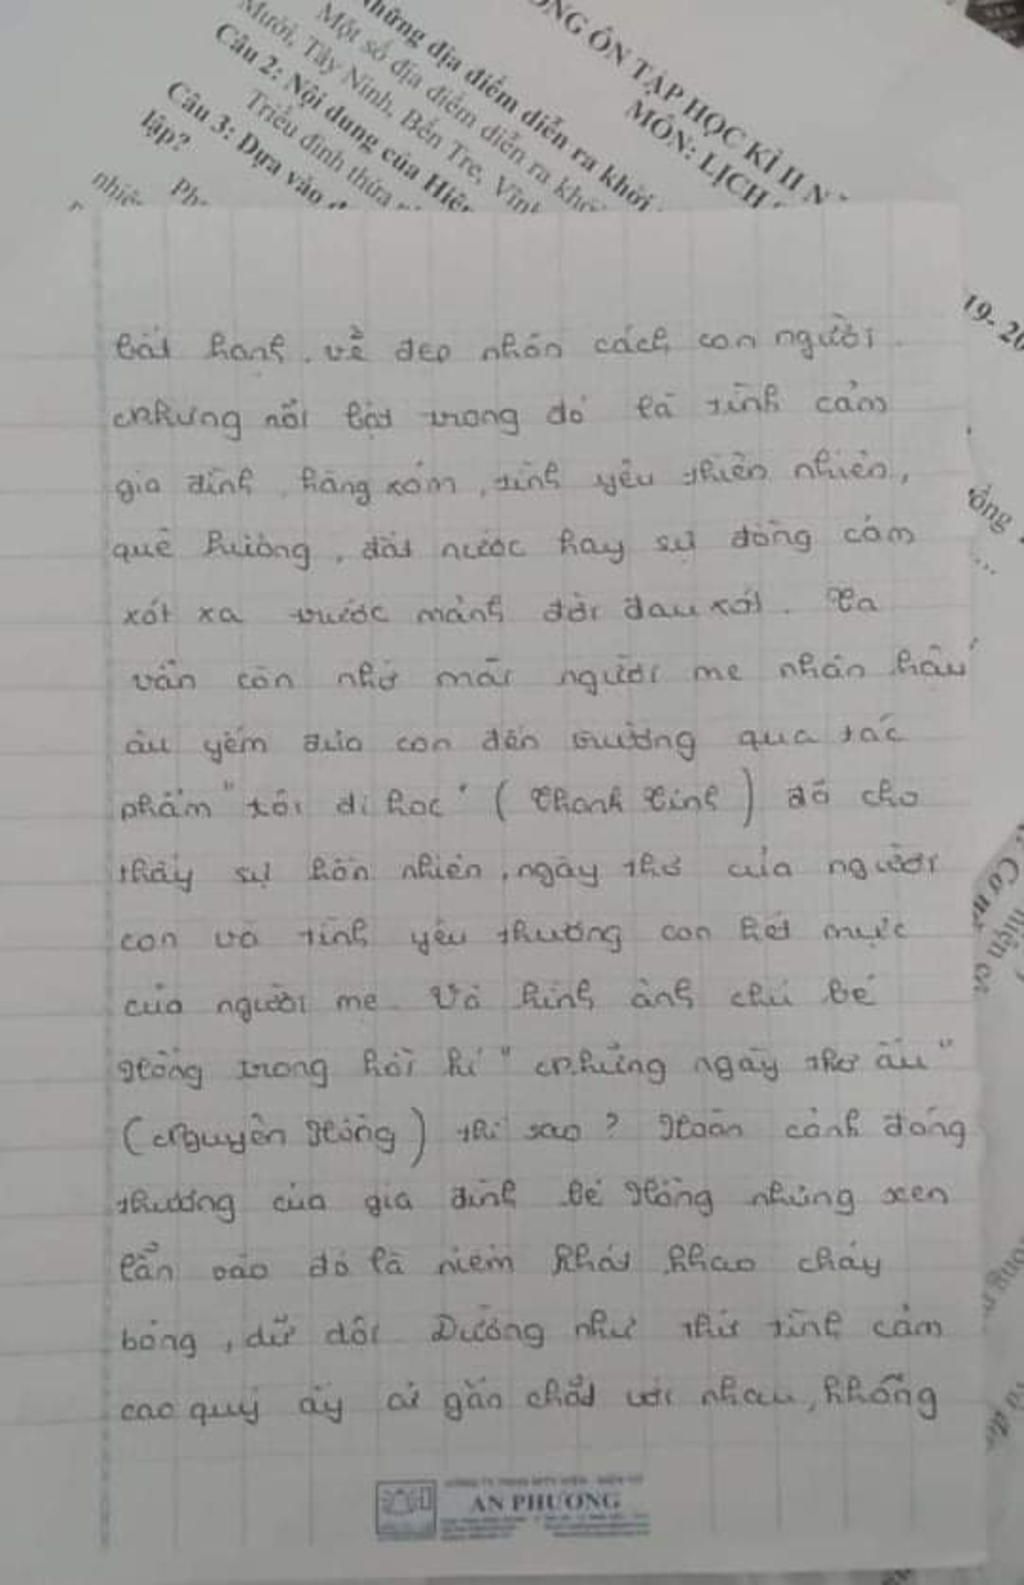 ƠNG ÔN TẬP HỌC KÌ II N
MÔN: LỊCH
những địa điểm diễn ra khởi
Một số địa điểm diễn ra khởi
Mười, Tây Ninh, Bến Tre, Vĩnh
Câu 2: Nội dung của Hiệp
Triều đình thừa
Câu 3: Dựa vào
lập?
19-20
bất hạnh, về đẹp nhân cách con người.
Nhưng nổi bật trong đó là tình cảm
gia đình, hàng xóm, tình yêu thiên nhiên,
quê hương, đất nước hay sự đồng cảm
xót xa trước mảnh đời đau xót. Ta
vẫn còn nhớ mãi người mẹ nhân hậu
âu yếm đưa con đến trường qua tác
phẩm "tôi đi học" (Thanh Tịnh) đã cho
thấy sự hồn nhiên, ngây thơ của người
con và tình yêu thương con hết mực
của người mẹ. Và hình ảnh chú bé
Hồng trong hồi kí "Những ngày thơ ấu"
(Nguyên Hồng) thì sao? Hoàn cảnh đáng
thương của gia đình bé Hồng nhưng xen
lẫn vào đó là niềm khát khao cháy
bỏng, dữ dội. Dường như thứ tình cảm
cao quý ấy cứ gắn chặt với nhau, không
AN PHƯƠNG